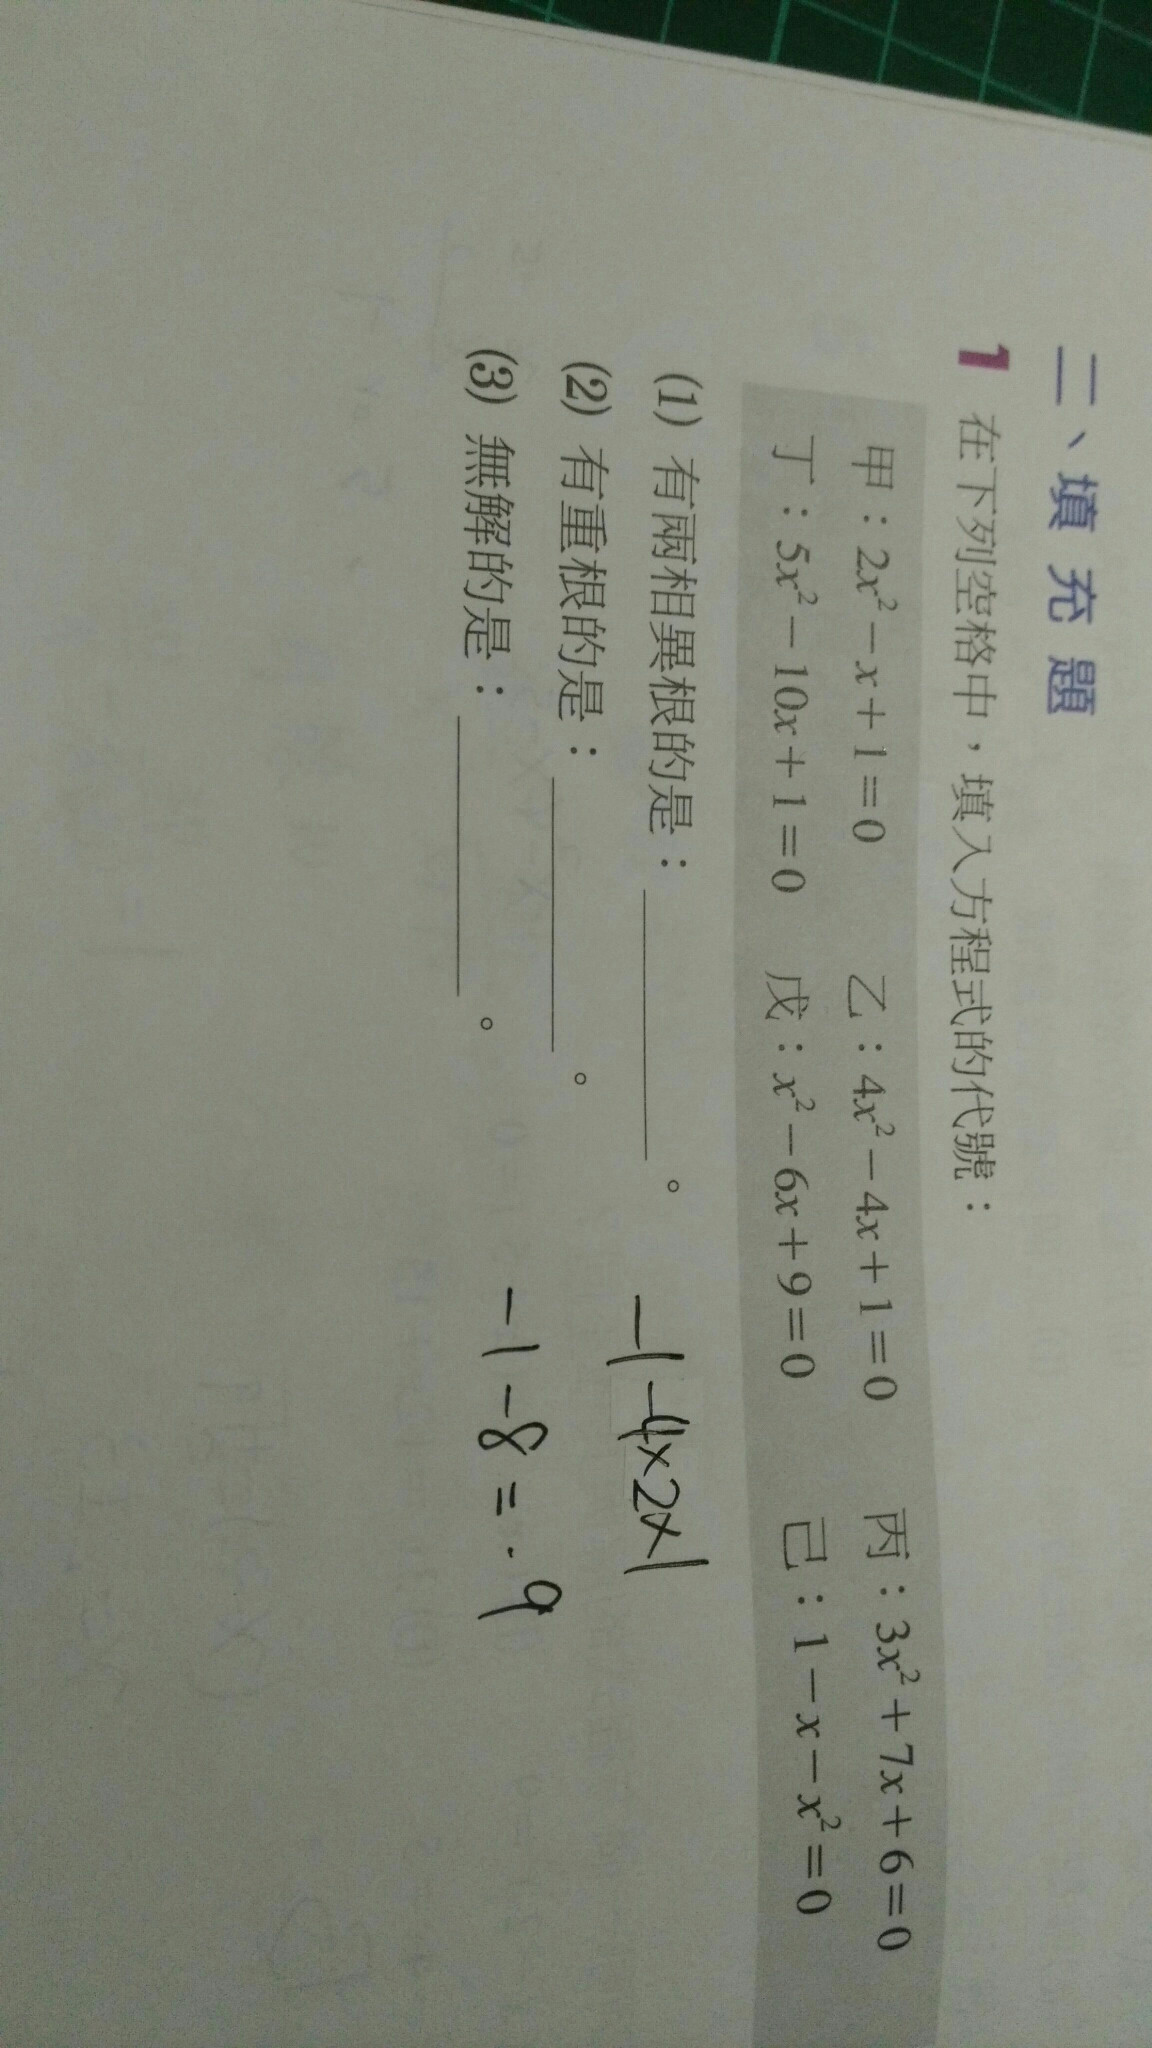 二、填充題
1 在下列空格中，填入方程式的代號：
甲：2x²－x＋1＝0 乙：4x²－4x＋1＝0 丙：3x²＋7x＋6＝0
丁：5x²－10x＋1＝0 戊：x²－6x＋9＝0 己：1－x－x²＝0
(1) 有兩相異根的是：＿＿＿＿＿＿。
(2) 有重根的是：＿＿＿＿＿＿。
(3) 無解的是：＿＿＿＿＿＿。
－1－4×2×1
－1－8＝-9